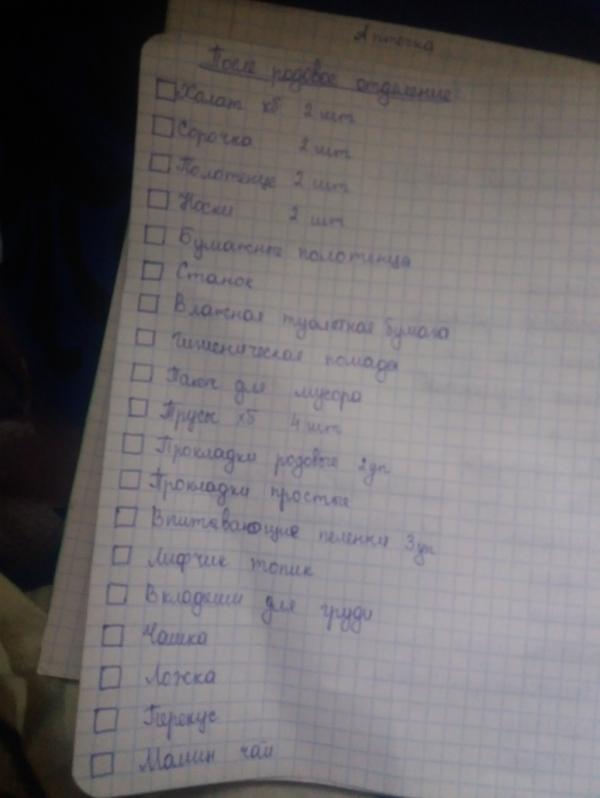 Аптечка
После родовое отделение
Халат хб 2 шт
Сорочка 2 шт
Полотенце 2 шт
Носки 2 шт
Бумажные полотенца
Станок
Влажная туалетная бумага
Гигиеническая помада
Пакет для мусора
Трусы хб 4 шт
Прокладки родовые 2 уп
Прокладки простые
Впитывающие пеленки 3 уп
Лифчик топик
Вкладыши для груди
Чашка
Ложка
Перекус
Мамин чай